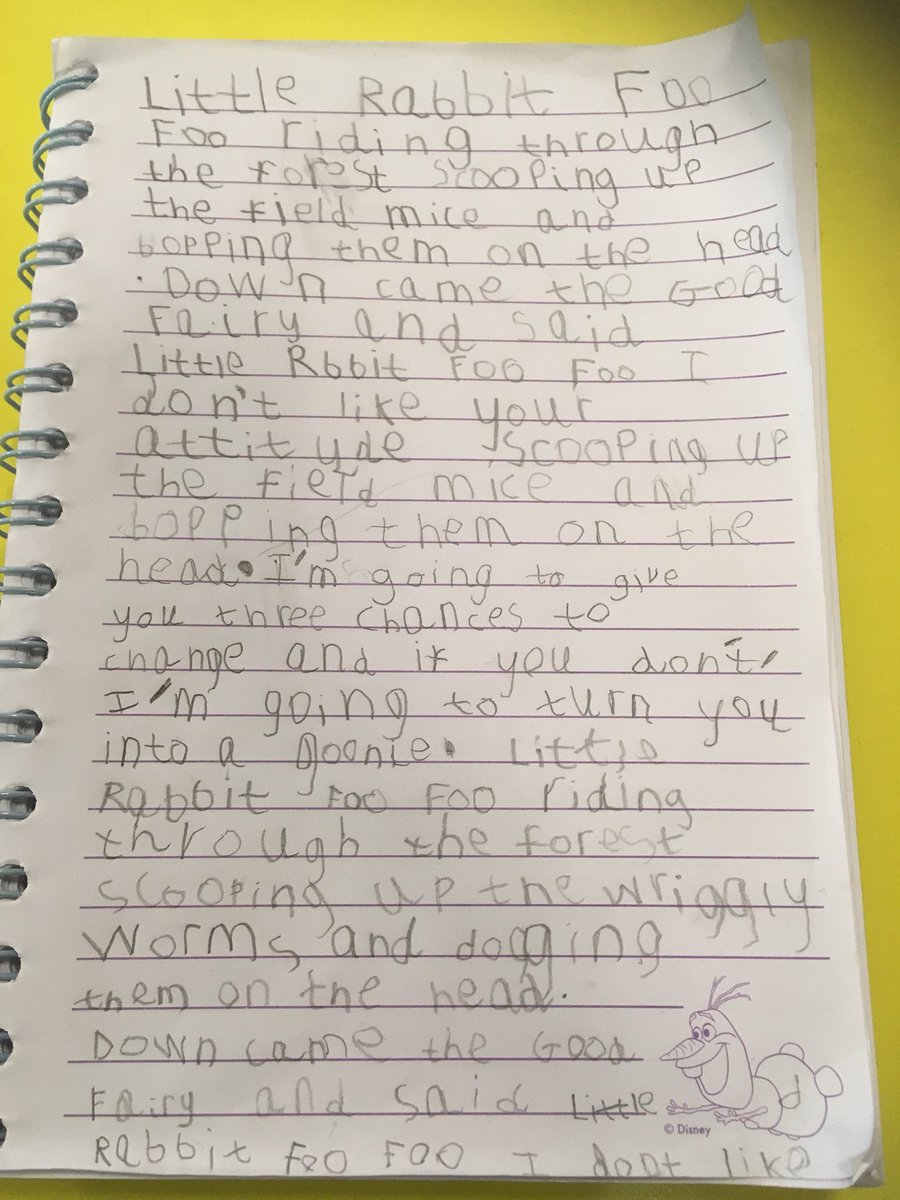 Little Rabbit Foo
Foo riding through
the forest scooping up
the field mice and
bopping them on the head
. Down came the Good
Fairy and said
Little Rbbit Foo Foo I
don't like your
attityde scooping up
the field mice and
bopping them on the
head. I'm going to give
you three chances to
change and if you don't,
I'm going to turn you
into a goonie. Little
Rabbit Foo Foo riding
through the forest
scooping up the wriggly
worms and dogging
them on the head.
Down came the Good
Fairy and said Little
Rabbit Foo Foo I dont like
© Disney